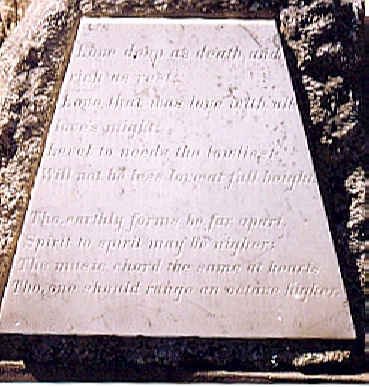 Love deep as death and
rich as rest;
Love that was love with all
love's might;
Level to needs the lowliest
Will not be less love at full height.
Tho, earthly forms be far apart,
Spirit to spirit may be nigher;
The music chord the same at heart,
Tho, one should range an octave higher.